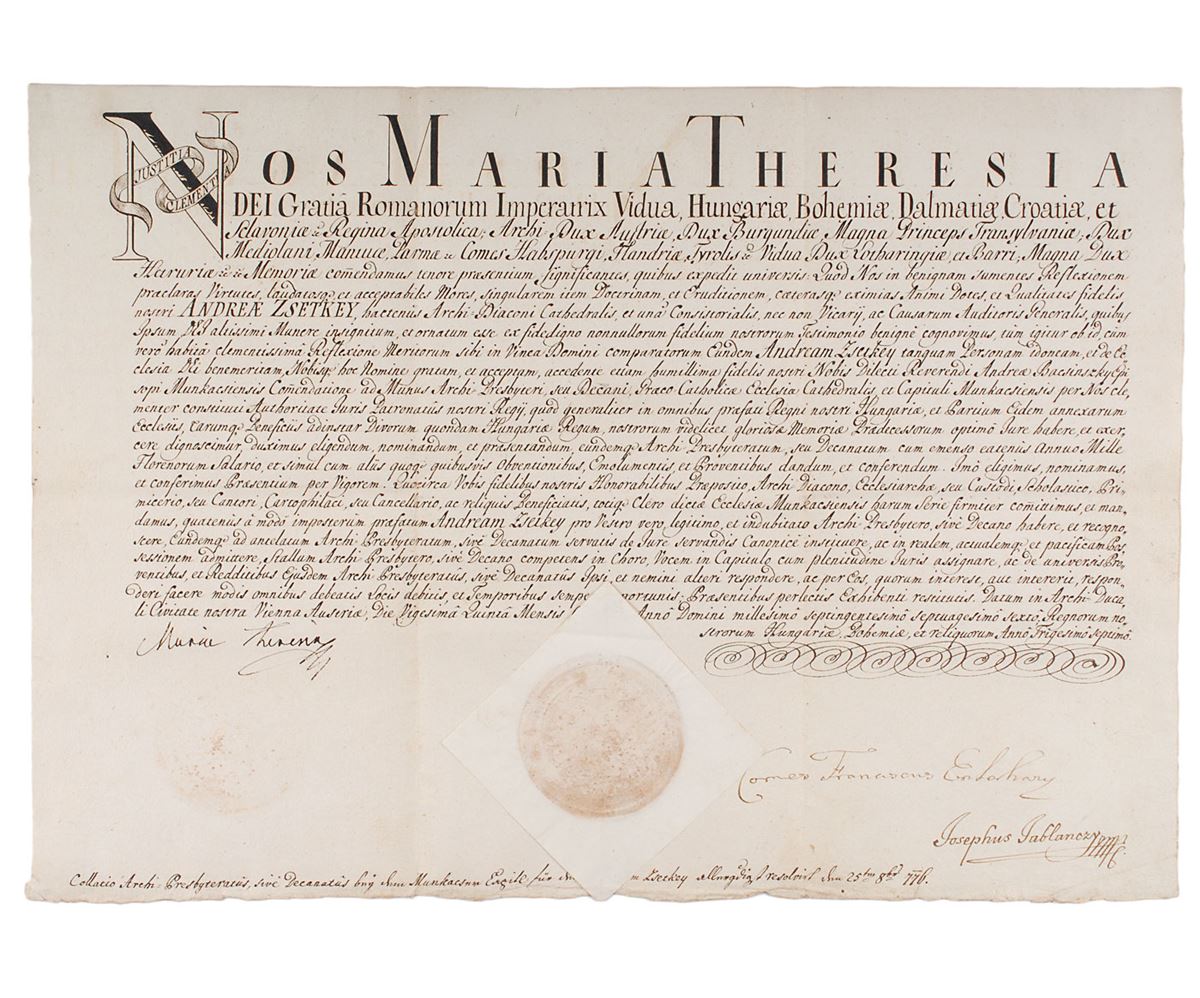 NOS MARIA THERESIA
JUSTITIA
CLEMENTIA
DEI Gratiâ Romanorum Imperatrix Vidua, Hungariæ, Bohemiæ, Dalmatiæ, Croatiæ, et
Sclavoniæ Regina Apostolica; Archi Dux Austriæ, Dux Burgundiæ, Magna Princeps Transylvaniæ; Dux
Mediolani Mantuæ, Parmæ Comes Habspurgi, Flandriæ, Tyrolis Vidua Dux Lotharingiæ, et Barri; Magna Dux
Hetruriæ Memoriæ com̃endamus tenore præsentium, significantes, quibus expedit universis: Quod Nos in benignam sumentes Reflexionem
præclaras Virtutes, laudatosq; et acceptabiles Mores, singularem item Doctrinam, et Eruditionem, cæterasq; eximias Animi Dotes, et Qualitates fidelis
nostri ANDREÆ ZSETKEY, hactenus Archi-Diaconi Cathedralis, et unà Consistorialis, nec non Vicarij, ac Causarum Auditoris Generalis, quibus
Ipsum, Dei altissimi Munere insignitum, et ornatum esse ex fidedigno nonnullorum fidelium nostrorum Testimonio benignè cognovimus, tùm igitur ob id cùm
verò habitâ clementissimâ Reflexione Meritorum sibi in Vinea Domini comparatorum Eundem Andream Zsetkey tanquam Personam idoneam, et de Ec-
clesia Dei benemeritam, Nobisq; hoc Nomine gratam, et acceptam, accedente etiam humillima fidelis nostri Nobis Dilecti Reverendi Andreæ Bacsinszky Epi-
scopi Munkacsiensis Com̃endatione ad Munus Archi Presbyteri, seu Decani, Græco Catholicæ Ecclesiæ Cathedralis, et Capituli Munkacsiensis per Nos cle-
menter constituti Authoritate Juris Patronatûs nostri Regij, quod generaliter in omnibus præfati Regni nostri Hungariæ, et Partium Eidem annexarum
Ecclesiis, Earumq; Beneficiis adinstar Divorum quondam Hungariæ Regum, nostrorum videlicet gloriosæ Memoriæ Prædecessorum optimô Jure habere, et exer-
cere dignoscimur, duximus eligendum, nominandum, et præsentandum, eundemq; Archi Presbyteratum, seu Decanatum cum emenso eatenùs Annuo Mille
Florenorum Salario, et simul cum aliis quoq; quibusvis Obventionibus, Emolumentis, et Proventibus dandum, et conferendum. Imò eligimus, nominamus,
et conferimus Præsentium per Vigorem. Quocirca Vobis fidelibus nostris Honorabilibus Præposito, Archi Diacono, Ecclesiarchæ, seu Custodi, Scholastico, Pri-
micerio, seu Cantori, Cartophilaci, seu Cancellario, ac reliquis Beneficiatis, totiq; Clero dictæ Ecclesiæ Munkacsiensis harum Serie firmiter com̃ittimus, et man-
damus, quatenùs à modò imposterum præfatum Andream Zsetkey pro Vestro vero, legitimo, et indubitato Archi Presbytero, sivè Decano habere, et recogno-
scere, Eundemq; ad antelatum Archi Presbyteratum, sivè Decanatum servatis de Jure servandis Canonicè instituere, ac in realem, actualemq; et pacificam Pos-
sessionem admittere, Stallum Archi Presbytero, sivè Decano competens in Choro, Vocem in Capitulo cum plenitudine Juris assignare, ac de universis Pro-
ventibus, et Redditibus Ejusdem Archi Presbyteratûs, sivè Decanatûs Ipsi, et nemini alteri respondere, ac per Eos, quorum interest, aut intererit, respon-
deri facere modis omnibus debeatis Locis debitis, et Temporibus sempe portunis: Præsentibus perlectis Exhibenti restitutis. Datum in Archi-Duca-
li Civitate nostra Vienna Austriæ, Die Vigesimâ Quintâ Mensis Annô Domini millesimô septingentesimô septuagesimô sextô, Regnorum no-
strorum Hungariæ, Bohemiæ, et reliquorum Annô Trigesimô septimô.
Maria Theresia
Comes Franciscus Esterhazy
Josephus Jablanczy
Collatio Archi-Presbyteratûs, sivè Decanatûs bey dem Munkacser für den Zsetkey resolvirt den 25ten 8bris 776.